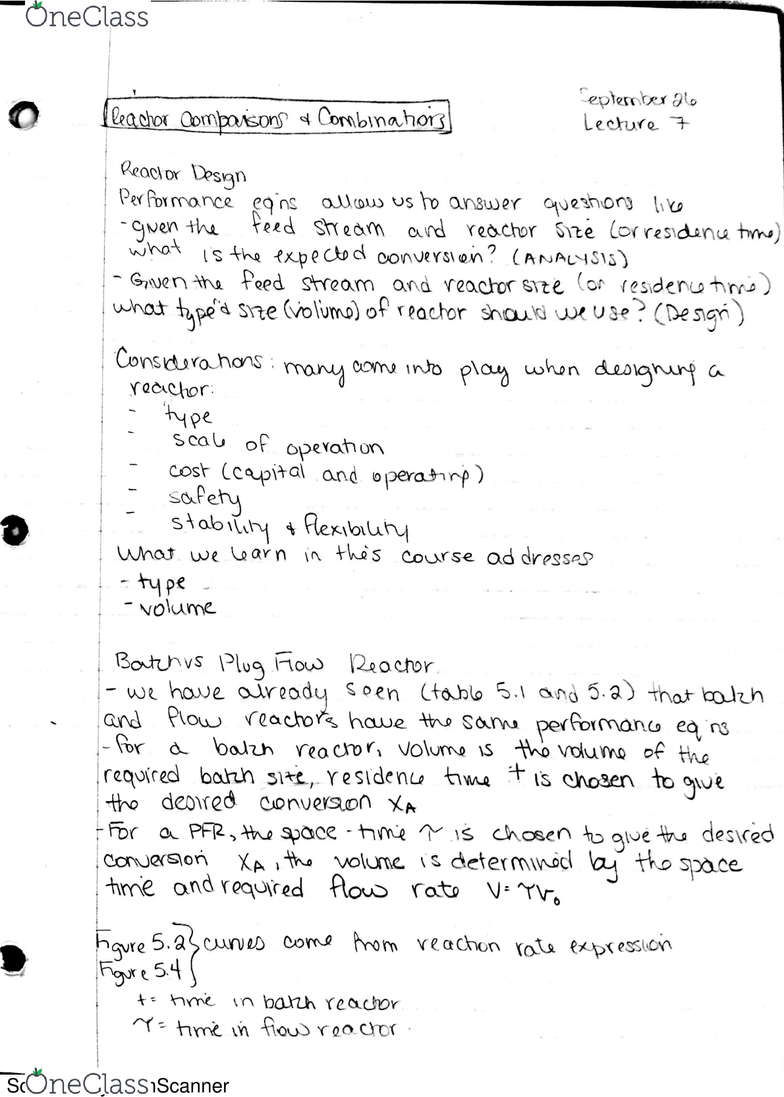 OneClass
September 26
Reactor Comparisons & Combinations
Lecture 7
Reactor Design
Performance eq'ns allow us to answer questions like
- given the feed stream and reactor size (or residence time)
what is the expected conversion? (ANALYSIS)
- Given the feed stream and reactor size (or residence time)
what type'd size (volume) of reactor should we use? (Design)
Considerations: many come into play when designing a
reactor:
- type
- scale of operation
- cost (capital and operating)
- safety
- stability & flexibility
What we learn in this course addresses
- type
- volume
Batch vs Plug Flow Reactor
- we have already seen (table 5.1 and 5.2) that batch
and flow reactors have the same performance eq'ns
- for a batch reactor, volume is the volume of the
required batch site, residence time t is chosen to give
the desired conversion XA
- For a PFR, the space-time τ is chosen to give the desired
conversion XA, the volume is determined by the space
time and required flow rate V=τv₀
Figure 5.2 } curves come from reaction rate expression
Figure 5.4
t= time in batch reactor
τ= time in flow reactor
OneClass Scanner